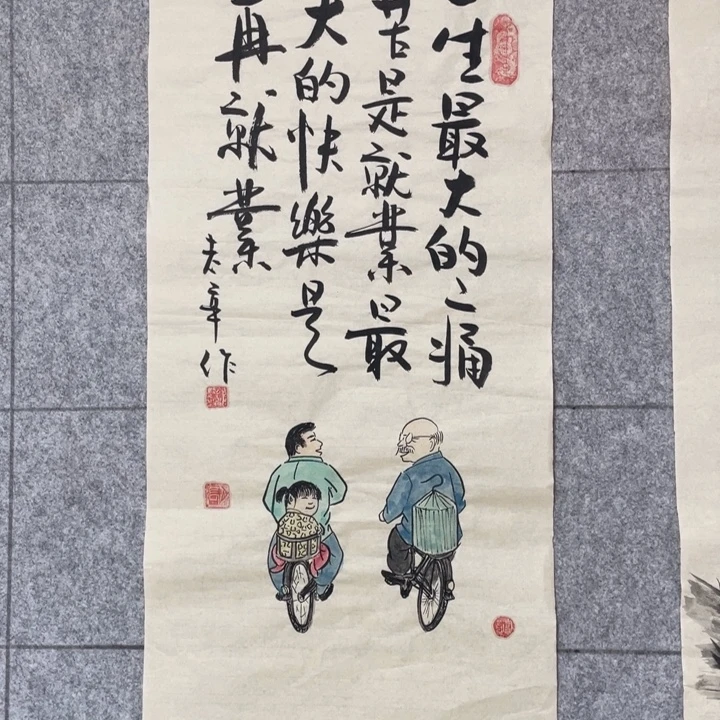 生最大的之痛
苦是就業最
大的快樂是
再就業
老 作